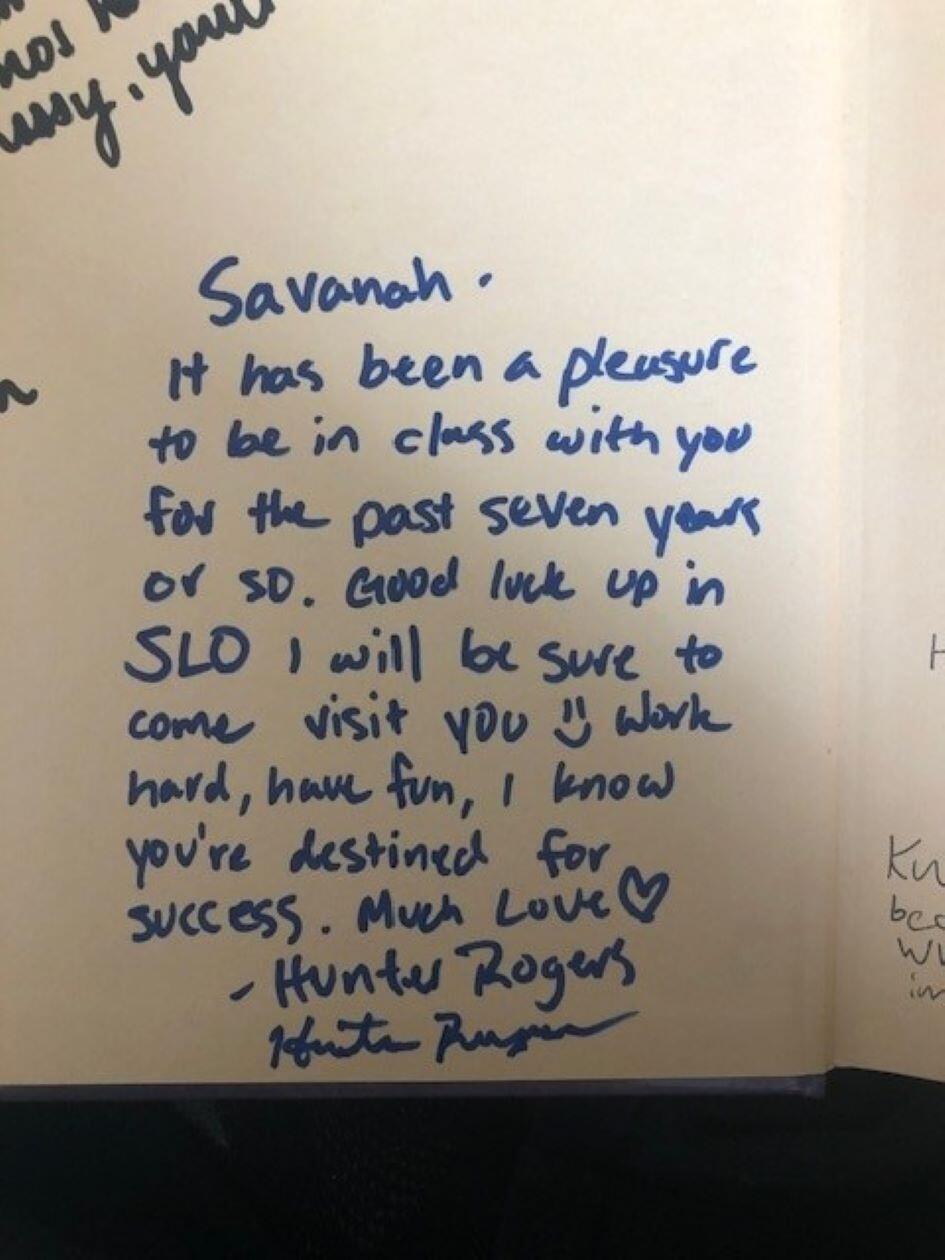 Savanah.
It has been a pleasure
to be in class with you
for the past seven years
or so. Good luck up in
SLO I will be sure to
come visit you Work
hard, have fun, I know
you're destined for
success. Much Love ♡
- Hunter Rogers
Hunter Rogers